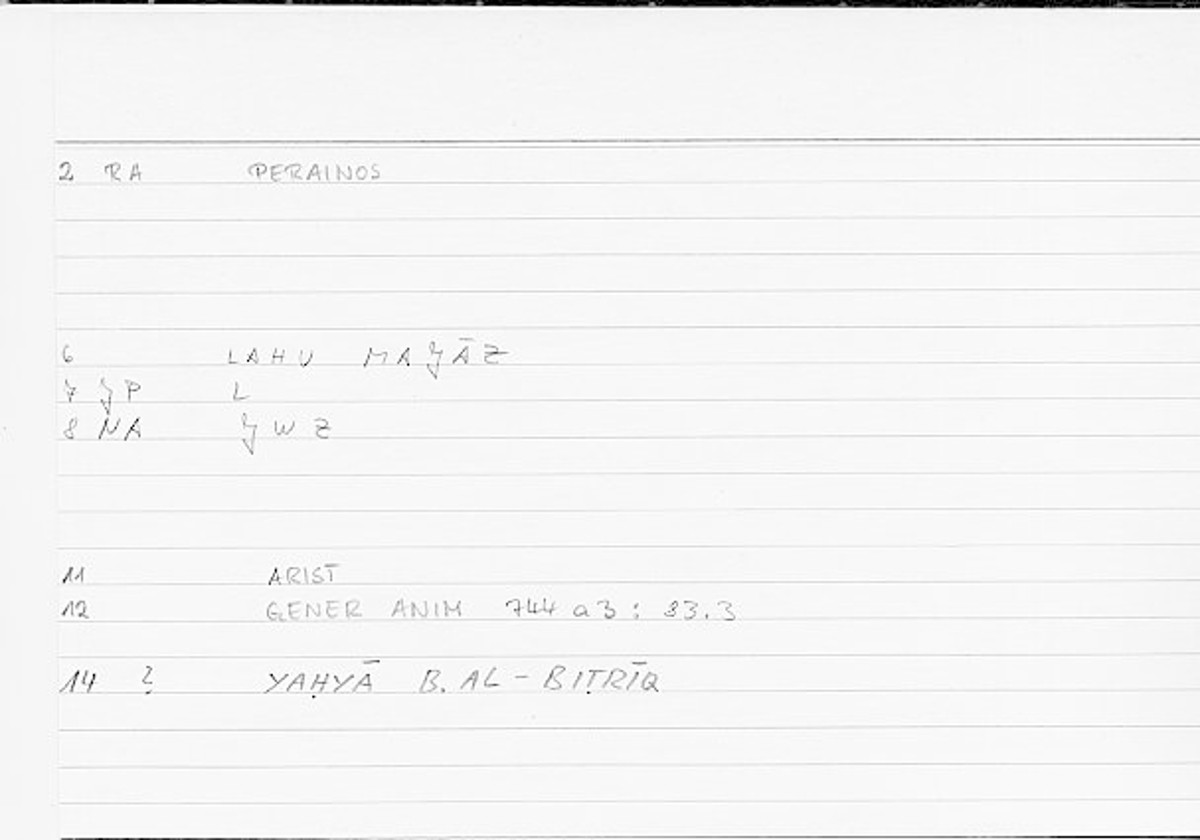 2 RA PERAINOS
6 LAHU MAǧĀZ
7 ǧP L
8 NA ǧWZ
11 ARIST
12 GENER ANIM 744 a 3 : 83.3
14 ? YAḤYĀ B. AL-BIṬRĪQ